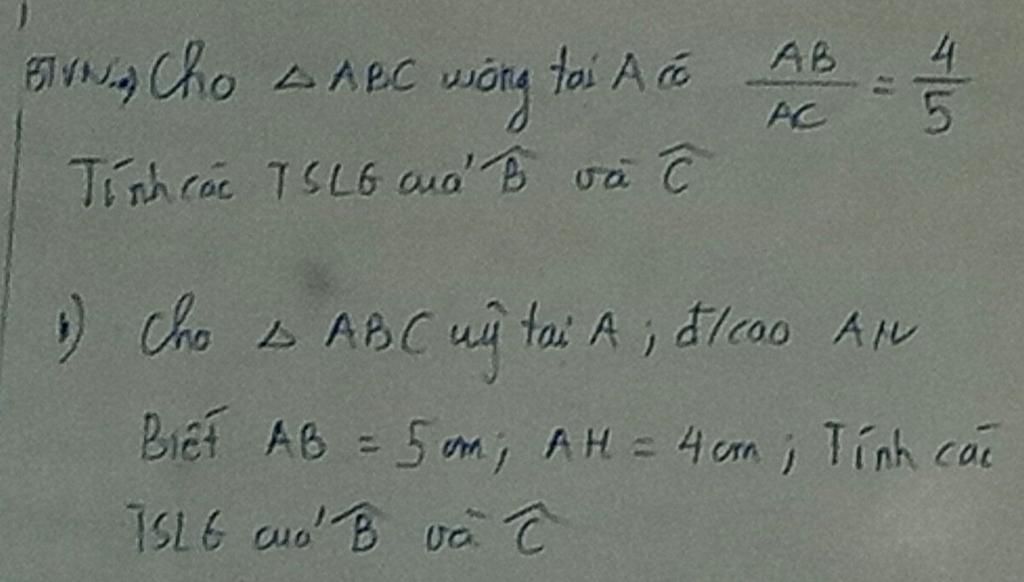 BTVN: a, Cho △ ABC vuông tại A có AB/AC = 4/5
Tính các TSLG của B̂ và Ĉ
b) Cho △ ABC vg̃ tại A ; đ/cao AH
Biết AB = 5 cm ; AH = 4 cm ; Tính các
TSLG của B̂ và Ĉ